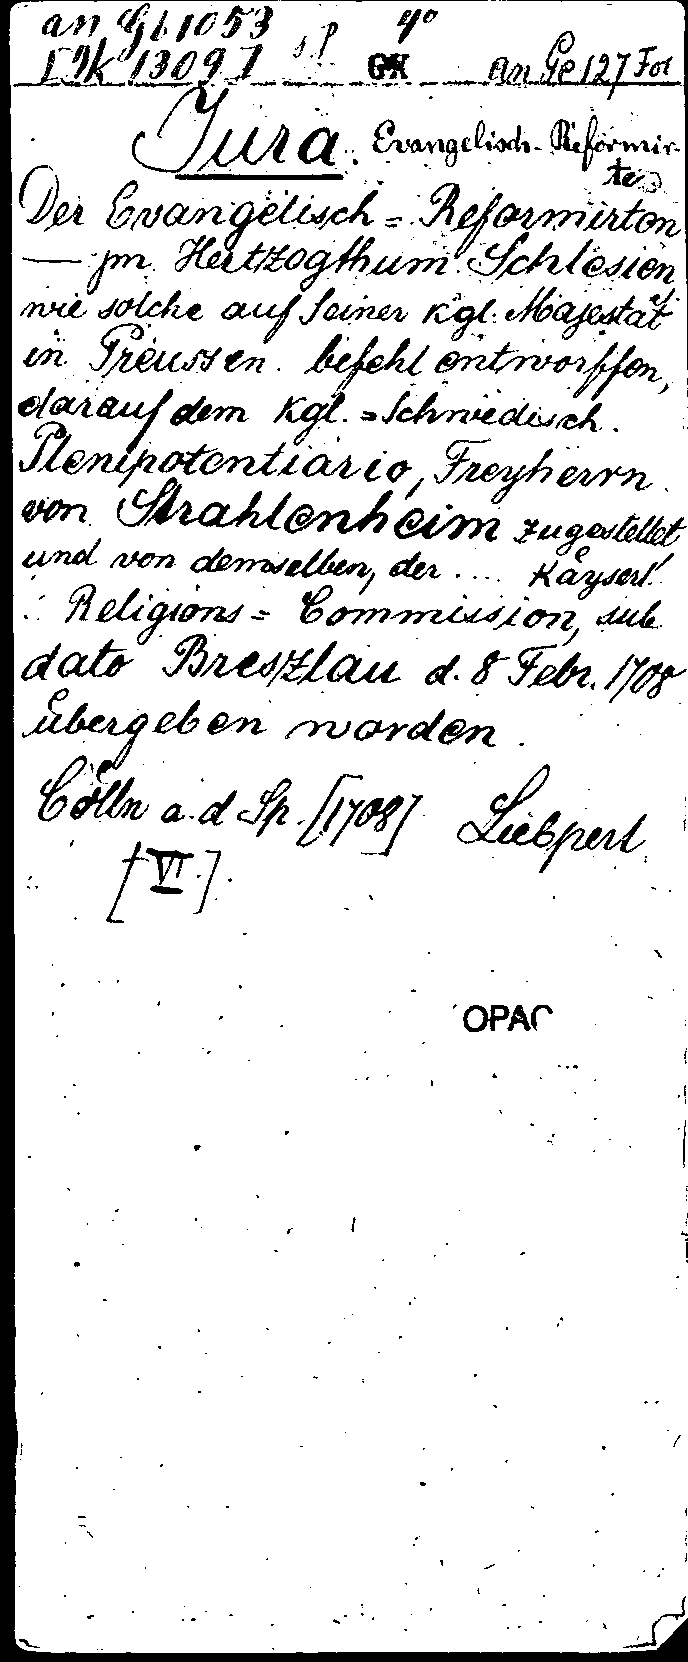 an Gb 1053 4°
13097 s.p. GK an Ge 127 Fol
Jura. Evangelisch-Reformir-
te
Der Evangelisch = Reformirten
— jm Hertzogthum Schlesien
wie solche auf Seiner Kgl. Majestät
in Preussen befehl entworffen,
darauf dem Kgl. = Schwedisch.
Plenipotentiario, Freyherrn
von Strahlenheim zugestellet
und von demselben, der .... Kåyserl.
Religions = Commission, sub
dato Breszlau d. 8 Febr. 1708
übergeben worden.
Cölln a. d. Sp. [1708] Liebpert
[VI].
OPAC